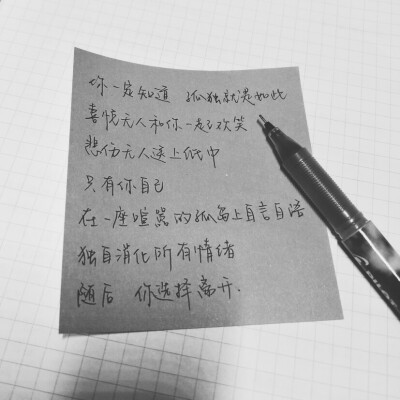 你一定知道 孤独就是如此
喜悦无人和你一起欢笑
悲伤无人递上纸巾
只有你自己
在一座喧嚣的孤岛上自言自语
独自消化所有情绪
随后 你选择离开.
PILOT